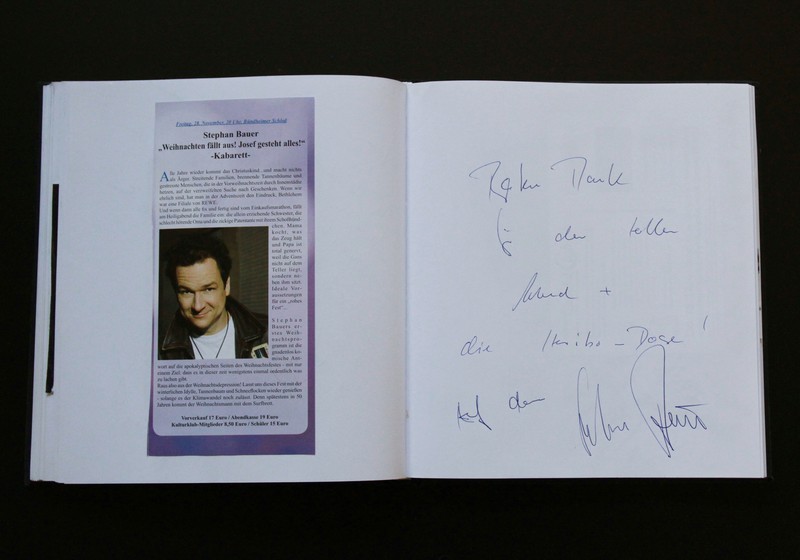 Freitag, 28. November, 20 Uhr, Bündheimer Schloß
Stephan Bauer
„Weihnachten fällt aus! Josef gesteht alles!“
-Kabarett-
Alle Jahre wieder kommt das Christuskind...und macht nichts
als Ärger. Streitende Familien, brennende Tannenbäume und
gestresste Menschen, die in der Vorweihnachtszeit durch Innenstädte
hetzen, auf der verzweifelten Suche nach Geschenken. Wenn wir
ehrlich sind, hat man in der Adventszeit den Eindruck, Bethlehem
war eine Filiale von REWE.
Und wenn dann alle fix und fertig sind vom Einkaufsmarathon, fällt
am Heiligabend die Familie ein: die allein erziehende Schwester, die
schlecht hörende Oma und die zickige Patentante mit ihrem Schoßhünd-
chen. Mama
kocht, was
das Zeug hält
und Papa ist
total genervt,
weil die Gans
nicht auf dem
Teller liegt,
sondern ne-
ben ihm sitzt.
Ideale Vor-
aussetzungen
für ein „rohes
Fest“...
Stephan
Bauers er-
stes Weih-
nachtspro-
gramm ist die
gnadenlos ko-
mische Ant-
wort auf die apokalyptischen Seiten des Weihnachtsfestes - mit nur
einem Ziel: dass es in dieser Zeit wenigstens einmal ordentlich was
zu lachen gibt.
Raus also aus der Weihnachtsdepression! Lasst uns dieses Fest mit der
winterlichen Idylle, Tannenbaum und Schneeflocken wieder genießen
- solange es der Klimawandel noch zulässt. Denn spätestens in 50
Jahren kommt der Weihnachtsmann mit dem Surfbrett.
Vorverkauf 17 Euro / Abendkasse 19 Euro
Kulturklub-Mitglieder 8,50 Euro / Schüler 15 Euro
Dank
für den tollen
Abend +
die Haribo-Dose!
Auf dem